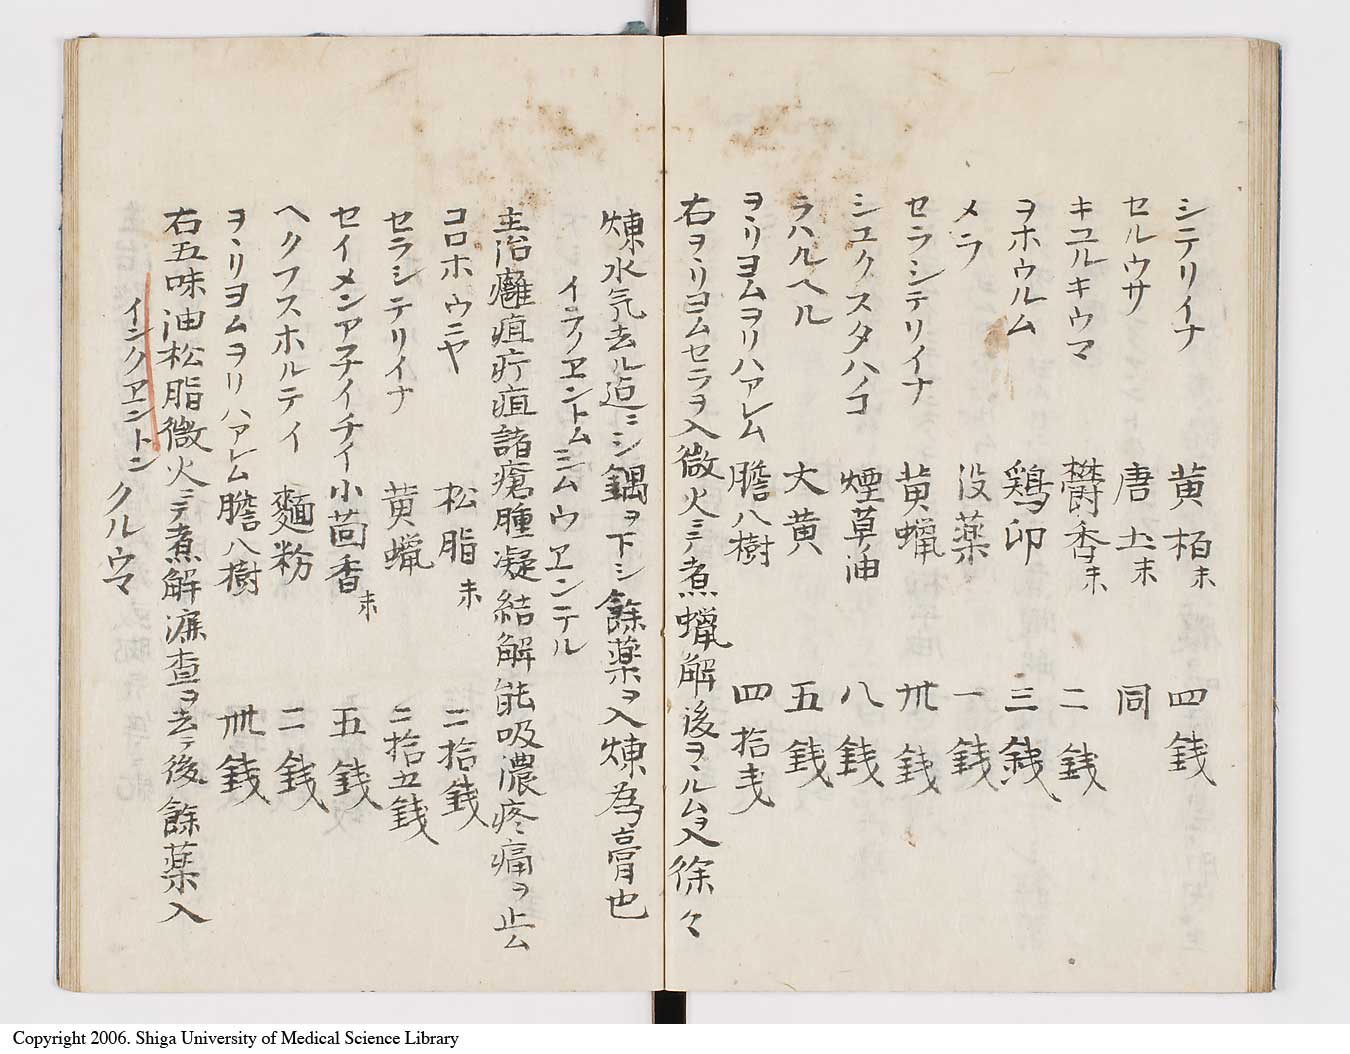 シテリイナ 黄栢末 四銭
セルウサ 唐土末 同
キユルキウマ 欝香末 二銭
ヲホウルム 鶏卵 三銭
メラ 没薬 一銭
セラシテリイナ 黄蝋 卅銭
シユクスタハコ 煙草油 八銭
ラハルヘル 大黄 五銭
ヲヽリヨムヲリハアレム 膽八樹 四拾戔
右ヲヽリヨムセラヲ入微火ニテ煮蝋解後ヲヽルムヲ入徐々
煉水気去ル迫ニシ鍋ヲ下シ餘薬ヲ入煉為膏也
イングヱントムミムウヱンテル
主治癰疽疔疽諸瘡腫凝結解能吸濃疼痛ヲ止ム
コロホウニヤ 松脂末 二拾銭
セラシテリイナ 黄蝋 二拾五銭
セイメンアチイチイ 小茴香末 五銭
ヘクフスホルテイ 麺粉 二銭
ヲヽリヨムヲリハアレム 膽八樹 卅銭
右五味油松脂微火ニテ煮解漉査ヲ去テ後餘薬入
インクヱントン クルウマ
Copyright 2006. Shiga University of Medical Science Library